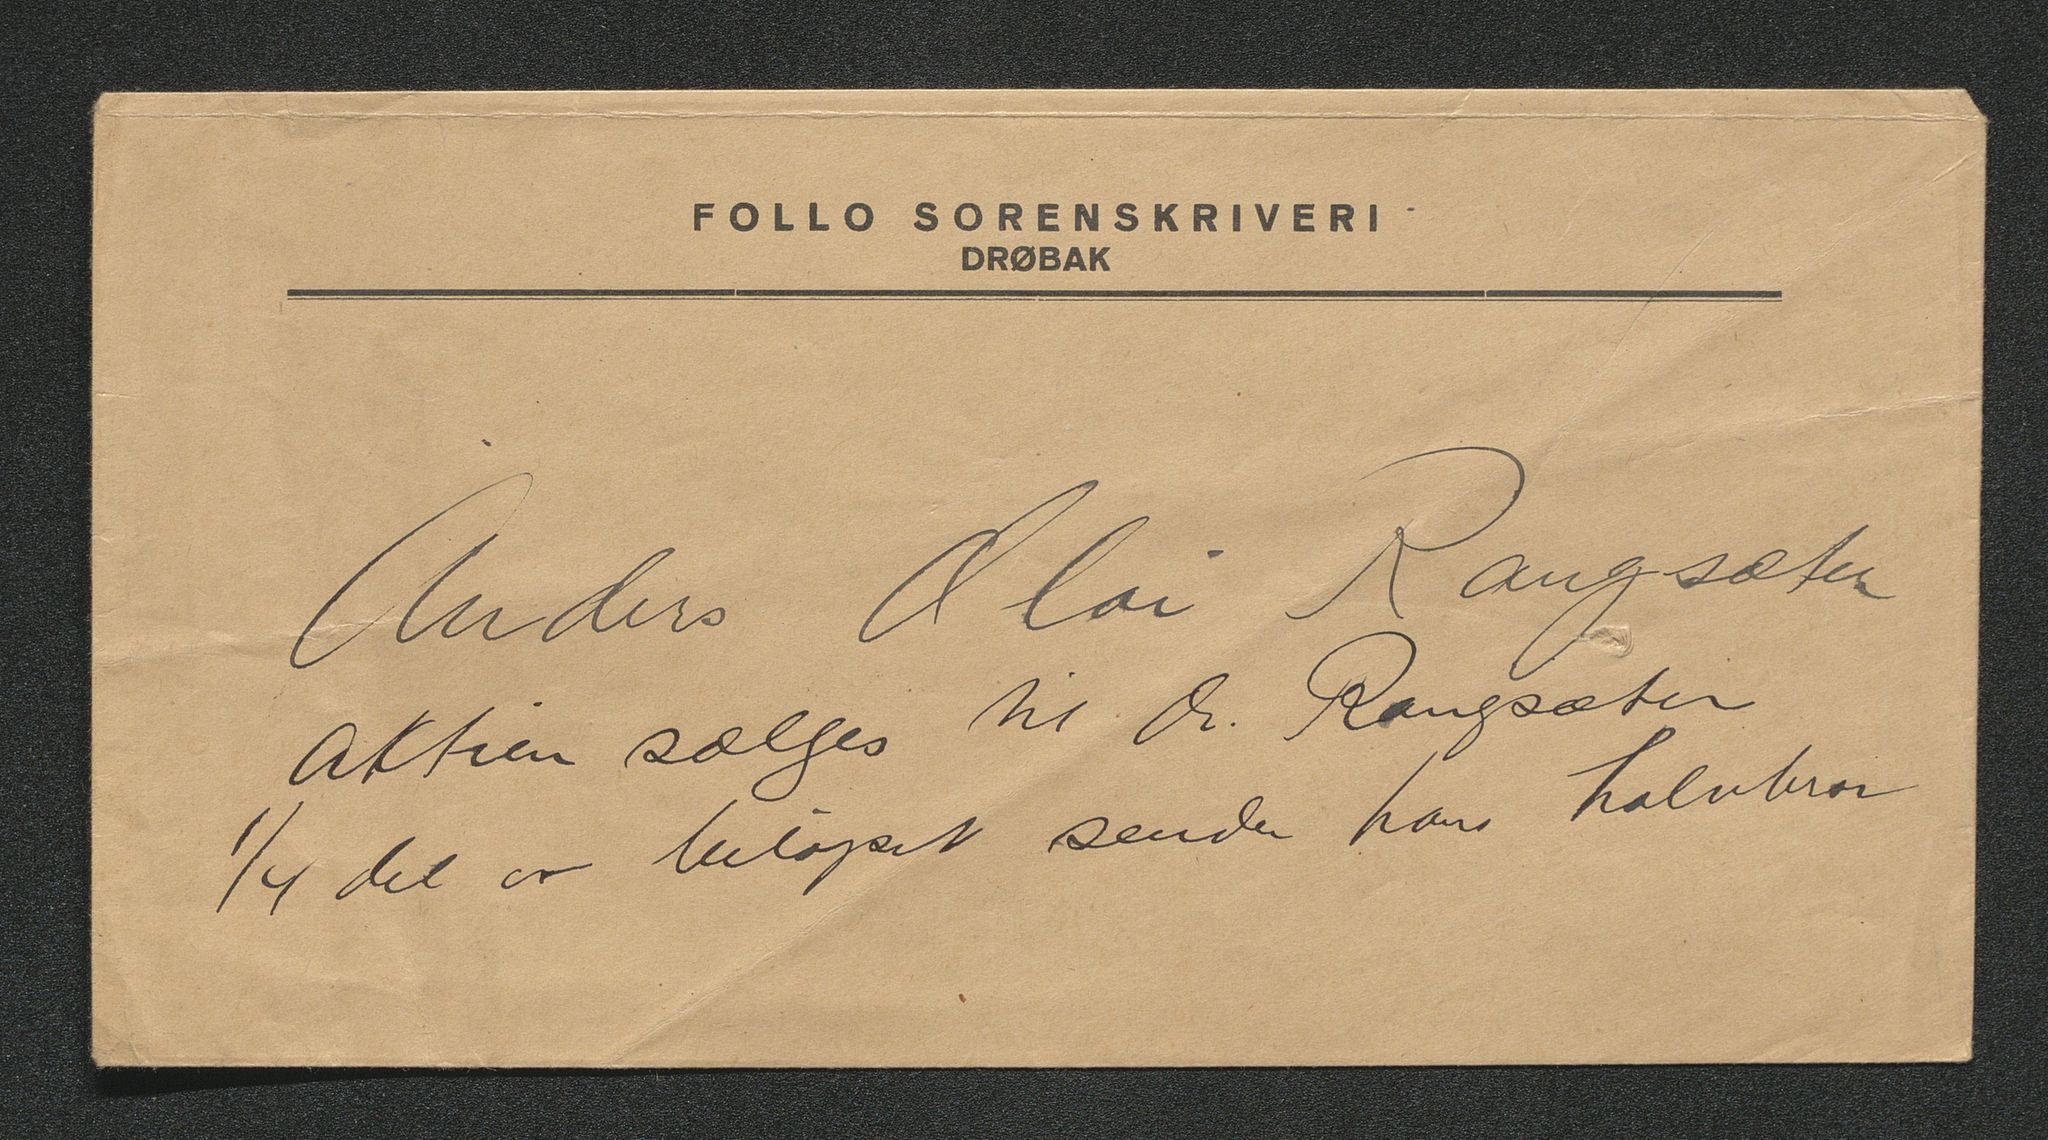 FOLLO SORENSKRIVERI
DRØBAK
Anders Olai Rangsæter
Aktien sælges til Dr. Rangsæter
1/4 del av beløpet sendes hans halvbror